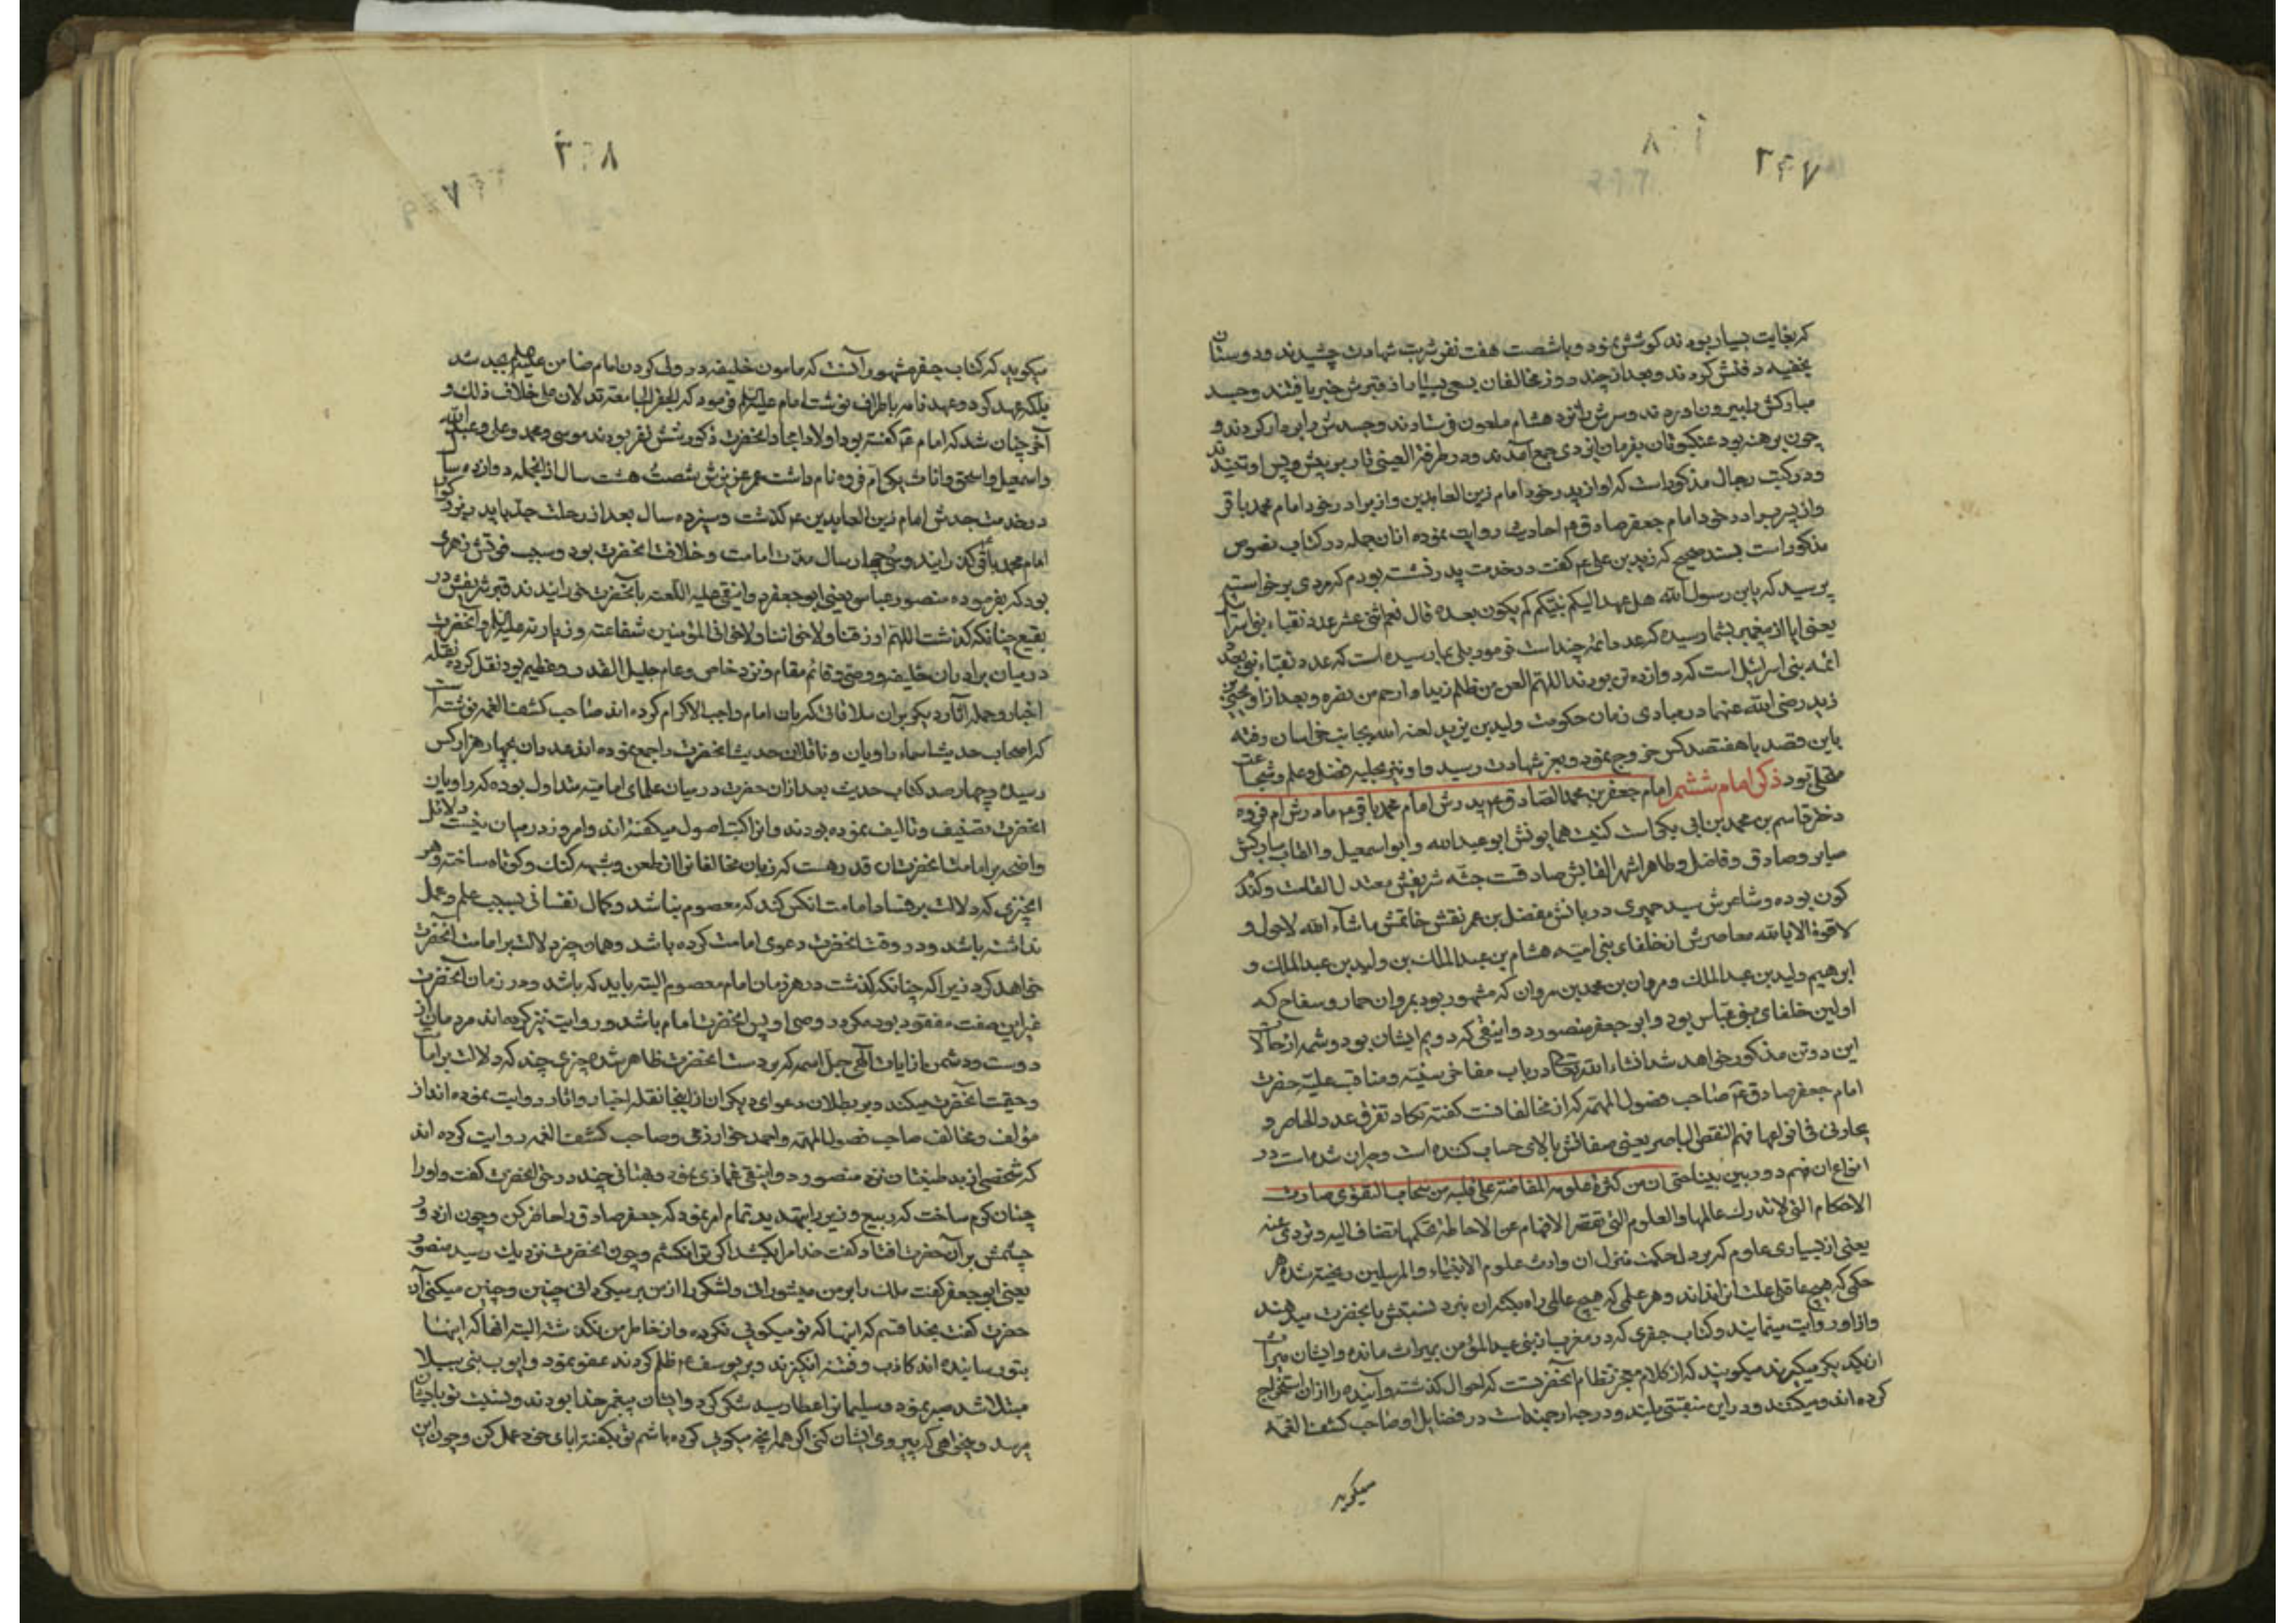 ۳۴۷
که بغایت بسیار بودند کوشش نمود و با شصت هفت نفر شربت شهادت چشیدند و دوستان
بخفیه دفنش کردند و بعد از چند روز مخالفان بسعی بسیار از قبرش خبر یافتند و جسد
مبارکش را بیرون آوردند و سرش را نزد هشام ملعون فرستادند و جسدش را بر دار کردند و
چون برهنه بود عنکبوتان بفرمان ایزدی جمع آمدند و در طرفة العینی تار بر پیش و پس او تنیدند
و در کتب رجال مذکور است که او از پدر خود امام زین العابدین و از برادر خود امام محمد باقر
و از پسر برادر خود امام جعفر صادق ع احادیث روایت نموده از آن جمله در کتاب نصوص
مذکور است بسند صحیح که زید بن علی ع گفت در خدمت پدر نشسته بودم که مردی برخواست
پرسید که یابن رسول الله هل عهد الیکم نبیکم کم یکون بعده قال نعم اثنی عشر عدد نقباء بنی اسرائیل
یعنی ایا از پیغمبر بشما رسیده که عدد ائمه چند است فرمود بلی بما رسیده است که عدد نقباء
ائمه بنی اسرائیل است که دوازده تن بودند اللهم العن من ظلم زیدا و ارحم من نصره و بعد از او یحیی بن
زید رضی الله عنهما در مبادی زمان حکومت ولید بن یزید لعنه الله بجانب خراسان رفته
باین قصد با هفتصد کس خروج نمود و بعز شهادت رسید و او نیز بحلیه فضل و علم و شجاعت
متحلی بود ذکر امام ششم امام جعفر بن محمد الصادق ع پدرش امام محمد باقر ع مادرش ام فروه
دختر قاسم بن محمد بن ابی بکر است کنیت همایونش ابو عبدالله و ابو اسمعیل و القاب مبارکش
صابر و صادق و فاضل و طاهر اشهر القابش صادقست جثه شریفش معتدل القامت و گندم
کون بوده و شاعرش سید حمیری دربانش مفضل بن عمر نقش خاتمش ماشاء الله لا حول و
لا قوة الا بالله معاصرش از خلفای بنی امیه هشام بن عبدالملک بن ولید بن عبدالملک و
ابرهیم ولید بن عبدالملک و مروان بن محمد بن مروان که مشهور بود بمروان حمار و سفاح که
اولین خلفای بنی عباس بود و ابو جعفر منصور دوانیقی که دویم ایشان بود و شمه از حالات
این دو تن مذکور خواهد شد انشاء الله تعالی در باب مفاخر سنیه و مناقب علیه حضرت
امام جعفر صادق ع صاحب فصول المهمه که از مخالفانست گفته تکاد تفوق عدد الحاصر و
یحار فی انواعها فهم الیقظ الباصر یعنی صفاتش بالای حساب کننده است و حیران شده است در
انواع ان فهم دوربین بینا حتی ان من کثرة علومه المفاضة علی قلبه من سحاب التقوی صارت
الاحکام التی لا تدرک عللها و العلوم التی تقصر الافهام عن الاحاطة بحکمها تضاف الیه و تروی عنه
یعنی از بسیاری علوم که بر دل حکمت منزل ان وارث علوم الانبیاء و المرسلین ریخته شده هر
حکمی که هیچ عاقلی علت انرا نداند و هر علمی که هیچ عالمی راه بکنه ان نبرد نسبتش بانحضرت میدهند
و از او روایت مینمایند و کتاب جفری که در مغرب از بنی عبدالمؤمن بمیراث مانده و ایشان میراث
از یکدیگر میگیرند میگویند که از کلام معجز نظام آنحضرتست که احوال گذشته و آینده را از ان استخراج
کرده اند و میکنند و در این منقبتی بلند و درجه ارجمند است در فضایل او صاحب کشف الغمه
میگوید
۳۴۸
میگوید که کتاب جفر مشهور آنست که مامون خلیفه در ولی کردن امام ضامن علیه السلام بجد شد
بلکه عهد کرد و عهدنامه باطراف نوشت امام علیه السلام فرمود که الجفر الجامعة تدلان علی خلاف ذلک و
آخر چنان شد که امام ع گفته بود اولاد امجاد آنحضرت ذکور شش نفر بودند موسی و محمد و علی و عبدالله
و اسمعیل و اسحق و اناث یکی ام فروه نام داشت عمر عزیزش شصت هشت سال از آنجمله دوازده سال
در خدمت جدش امام زین العابدین ع گذشت و سیزده سال بعد از رحلت جد با پدر بزرگوار
امام محمد باقر گذرانید و سی چهار سال مدت امامت و خلافت انحضرت بود و سبب فوتش زهری
بود که بفرموده منصور عباسی یعنی ابو جعفر دوانیقی علیه اللعنه بآنحضرت خورانیدند قبر شریفش در
بقیع چنانکه گذشت اللهم ارزقنا ولاخواننا ولاخواننا المؤمنین شفاعته و زیارته علیه السلام و آنحضرت
در میان برادران خلیفه و وصی و قائم مقام و نزد خاص و عام جلیل القدر و عظیم بود نقل کرده نقله
اخبار و حمله آثار دیگر بر ان ملاقاتی که بان امام واجب الاکرام کرده اند صاحب کشف الغمه نوشته است
که اصحاب حدیث اسماء راویان و ناقلان حدیث انحضرت را جمع نموده اند عددشان بچهار هزار کس
رسیده و چهار صد کتاب حدیث بعد از ان حضرت در میان علمای امامیه متداول بوده که راویان
انحضرت تصنیف و تالیف نموده بودند و انرا کتب اصول میگفته اند و امروز در میان نیست و دلائل
واضح بر امامت انحضرت ان قدر هست که زبان مخالفانرا از طعن و شبهه گنگ و کوتاه ساخته و هر
انچیزی که دلالت بر فساد امامت انکس کند که معصوم نباشد و کمال نفسانی بسبب علم و عمل
نداشته باشد و در وقت انحضرت دعوی امامت کرده باشد و همان چیز دلالت بر امامت آنحضرت
خواهد کرد زیرا که چنانکه گذشت در هر زمان امام معصوم البته باید که باشد و در زمان آنحضرت
غیر این صفت مفقود بوده مگر در وصی او پس انحضرت امام باشد و روایت نیز کرده اند مردمان از
دوست و دشمن باز ایات الهی جل اسمه که بر دست انحضرت ظاهر شده چیزی چند که دلالت بر امامت
و حقیت آنحضرت میکند و بر بطلان دعوای دیگران از اینجا نقله اخبار و اثار روایت نموده اند از
مؤلف و مخالف صاحب فصول المهمه و احمد خوارزمی و صاحب کشف الغمه روایت کرده اند
که شخصی از بد طینتان نزد منصور دوانیقی غمازی نمود و بهتانی چند در حق انحضرت گفت و او را
چنان گرم ساخت که ربیع وزیر را بتهدید تمام امر نمود که جعفر صادق را حاضر کن و چون از دور
چشمش بر آن حضرت افتاد گفت خدا مرا بکشد اگر ترا نکشم و چون انحضرت نزدیک رسید منصور
یعنی ابو جعفر گفت ملک را بر من میشورانی و لشکر را از من بر میگردانی چنین و چنین میکنی آن
حضرت گفت بخدا قسم که اینها که تو میگوئی نکرده و از خاطر من نگذشته البته انها که اینها
بتو رسانیده اند کاذب و فتنه انگیزند و بر یوسف ع ظلم کردند عفو نمود و ایوب نبی ببلا
مبتلا شد صبر نمود و سلیمانرا عطا رسید شکر کرد و ایشان پیغمبر خدا بودند و نسبت تو بایشان
میرسد و میخواهی که پیروی ایشان کنی اگر همانچه میگویی کرده باشم تو بگفته ابای خود عمل کن و چون این